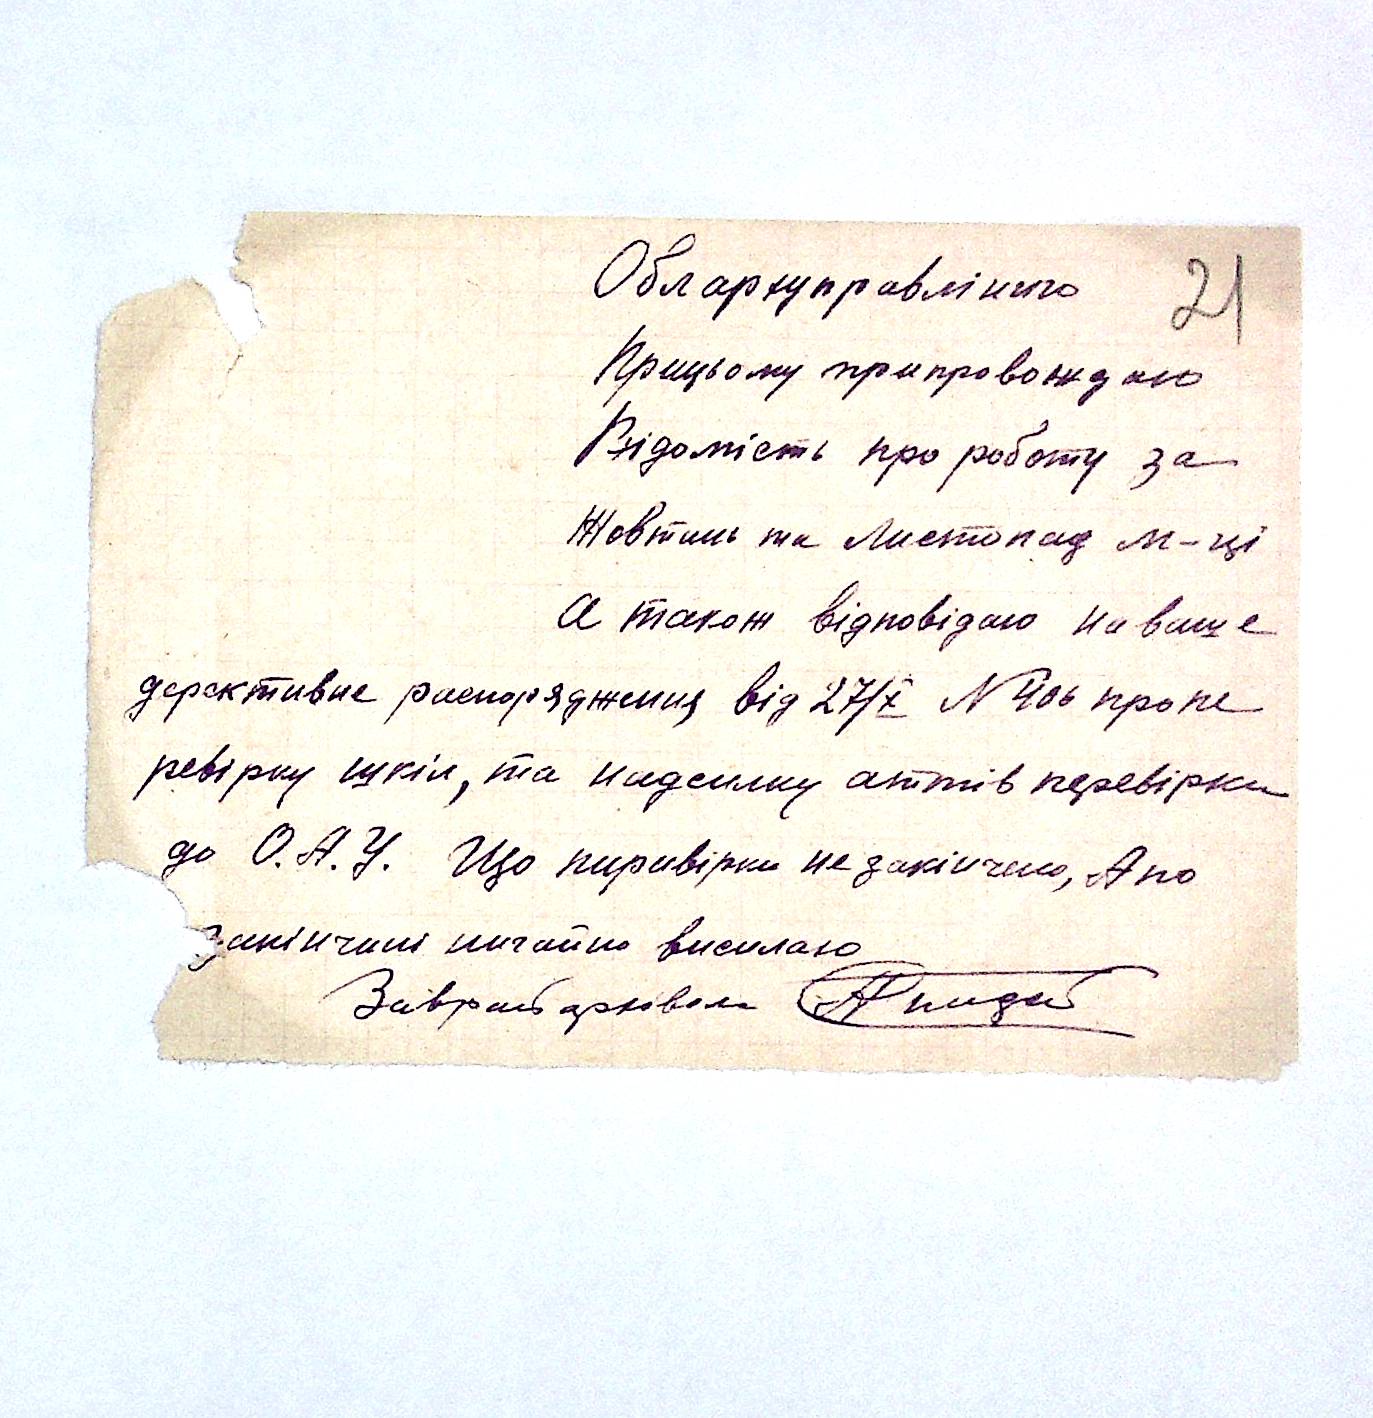 Облархуправлінню 21
Прицьому припровождаю
Відомість про роботу за
Жовтень та Листопад м-ці
А також відповідаю на ваше
дерективне распорядження від 27/X № 406 про пе
ревірку шкіл, та надсилку актів перевірки
до О.А.У. Що перевірка не закінчена, А по
закінчині негайно висилаю
Заврайархівом